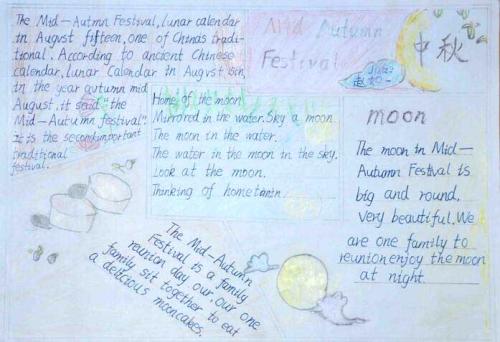 The Mid-Autmn Festival, lunar calendar
in Augvst fifteen, one of Chinas tradi-
tional. According to ancient Chinese
calendar, lunar Calandar in Augvst isin,
in the year qutumn mid
August, it said "the
Mid-Autumn festival".
It is the second important
traditional
festival.
Mid Autumn
Festival
中秋
Home of the moon
Mirrored in the water. Sky a moon
The moon in the water.
The water in the moon in the sky.
Look at the moon.
Thinking of
moon
The moon in Mid-
Autumn Festival is
big and round,
very beautiful. We
are one family to
reunion enjoy the moon
at night.
The Mid-Autumn
Festival is a family
reunion day our. our one
family sit together to eat
a delicious mooncakes.